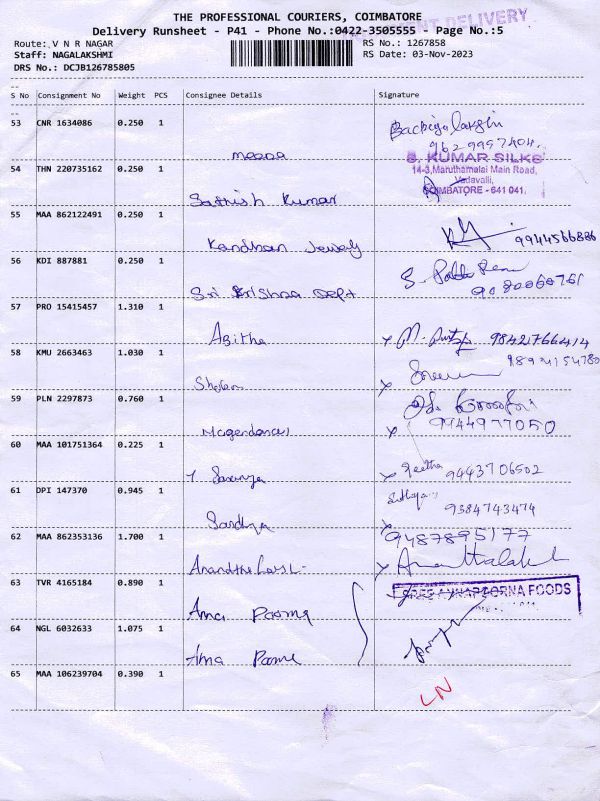 THE PROFESSIONAL COURIERS, COIMBATORE
DELIVERY
Delivery Runsheet - P41 - Phone No.:0422-3505555 - Page No.:5
Route: V N R NAGAR
RS No.: 1267858
Staff: NAGALAKSHMI
RS Date: 03-Nov-2023
DRS No.: DCJB126785805
--
S No Consignment No Weight PCS Consignee Details Signature
--
53 CNR 1634086 0.250 1
meena
9629957404.
54 THN 220735162 0.250 1
Sathish Kumar
S. KUMAR SILKS
14-3,Maruthamalai Main Road,
Vadavalli,
COIMBATORE - 641 041.
55 MAA 862122491 0.250 1
Kandhan Jewely
9944566886
56 KDI 887881 0.250 1
Sri Krishna Dept
9080060761
57 PRO 15415457 1.310 1
x 9842766414
58 KMU 2663463 1.030 1
9894154780
x
59 PLN 2297873 0.760 1
9944977050
60 MAA 101751364 0.225 1
Saranya
x Geetha 9443706502
61 DPI 147370 0.945 1
Sandhya
x 9384743474
62 MAA 862353136 1.700 1
9487895177
x
63 TVR 4165184 0.890 1
Ana Poorna
SREE ANNAPOORNA FOODS
64 NGL 6032633 1.075 1
Ana
65 MAA 106239704 0.390 1
LN